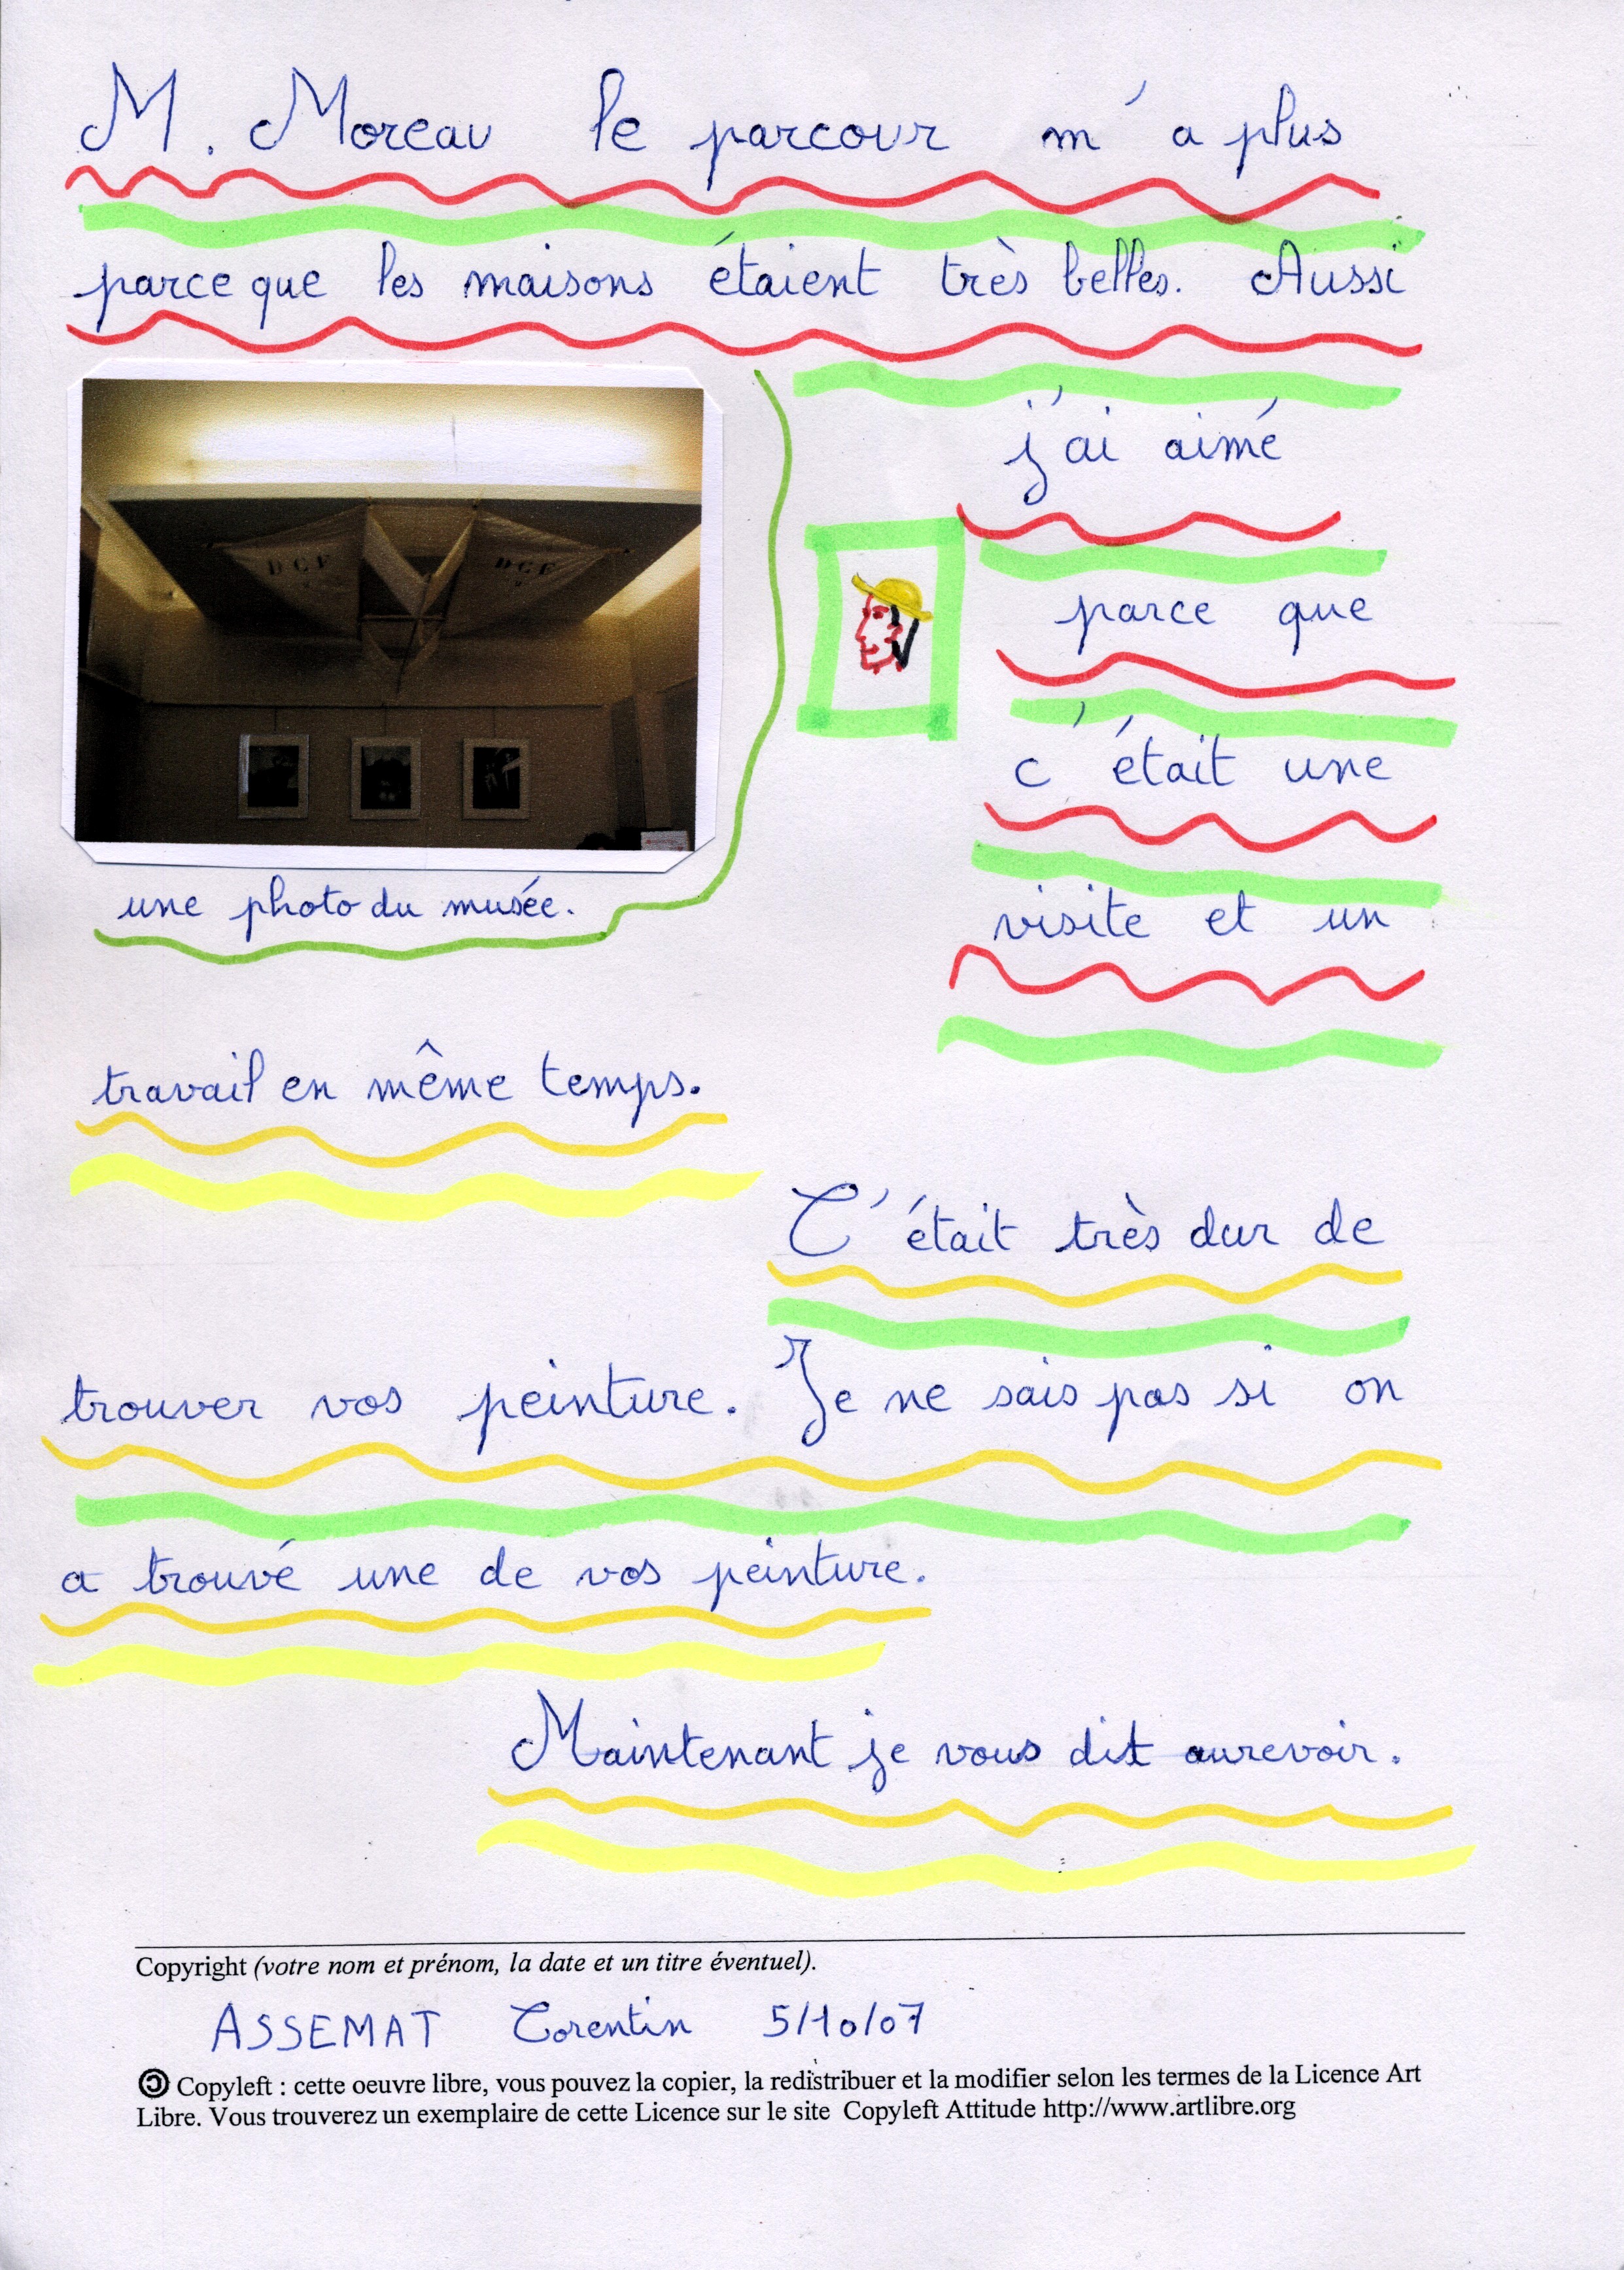 M. Moreau le parcour m'a plus
parce que les maisons étaient très belles. Aussi
j'ai aimé
parce que
c'était une
visite et un
DCF DCF
une photo du musée.
travail en même temps.
C'était très dur de
trouver vos peinture. Je ne sais pas si on
a trouvé une de vos peinture.
Maintenant je vous dit aurevoir.
Copyright (votre nom et prénom, la date et un titre éventuel).
ASSEMAT Corentin 5/10/07
Copyleft : cette oeuvre libre, vous pouvez la copier, la redistribuer et la modifier selon les termes de la Licence Art
Libre. Vous trouverez un exemplaire de cette Licence sur le site Copyleft Attitude http://www.artlibre.org